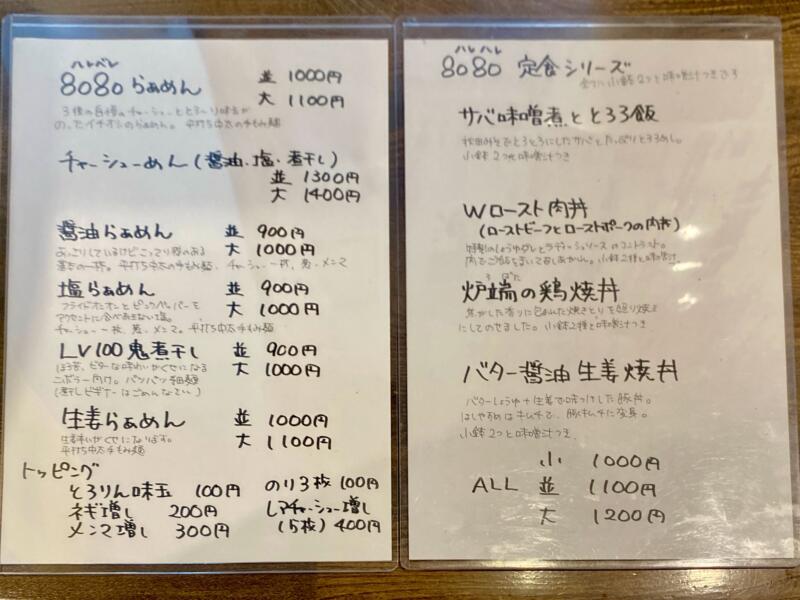 ハレバレ
8080 らぁめん 並 1000円
大 1100円
3種の自慢のチャーシューととろ〜り味玉が
の、たイチオシのらぁめん。平打ち中太の手もみ麺
チャーシューめん(醤油、塩、煮干し)
並 1300円
大 1400円
醤油らぁめん 並 900円
あっさりしているけどこってり感のある 大 1000円
平打ち中太の手もみ麺、チャーシュー一枚、葱、メンマ
塩らぁめん 並 900円
フライドオニオンとピンクペッパーを 大 1000円
アクセントに食べあきない塩。
チャーシュー一枚、葱、メンマ。平打ち中太手もみ麺
LV100鬼煮干し 並 900円
ほろ苦、ビターな味わいがくせになる 大 1000円
ニボラー向け。パツパツ細麺
(煮干しビギナーはごめんなさい)
生姜らぁめん 並 1000円
生姜味がくせになります。 大 1100円
平打ち中太手もみ麺
トッピング
とろりん味玉 100円 のり3枚 100円
ネギ増し 200円 レアチャーシュー増し
メンマ増し 300円 (5枚)400円
ハレハレ
8080 定食シリーズ
全てに小鉢2つと味噌汁つきです
サバ味噌煮ととろろ飯
秋田みそでとろとろにしたサバとたっぷりとろろめし。
小鉢2つと味噌汁つき
Wロースト肉丼
(ローストビーフとローストポークの肉丼)
特製のしょうゆダレとラディッシュソースのコントラスト。
肉でご飯をまいてめしあがれ。小鉢2種と味噌汁
ろばた
炉端の鶏焼丼
焦がした香りに包まれた焼きとりを照り焼き
にしてのせました。小鉢2種と味噌汁つき
バター醤油生姜焼丼
バターしょうゆ+生姜で味つけした豚丼。
はしやすめはキムチで、豚キムチに変身。
小鉢2つと味噌汁つき
小 1000円
ALL 並 1100円
大 1200円